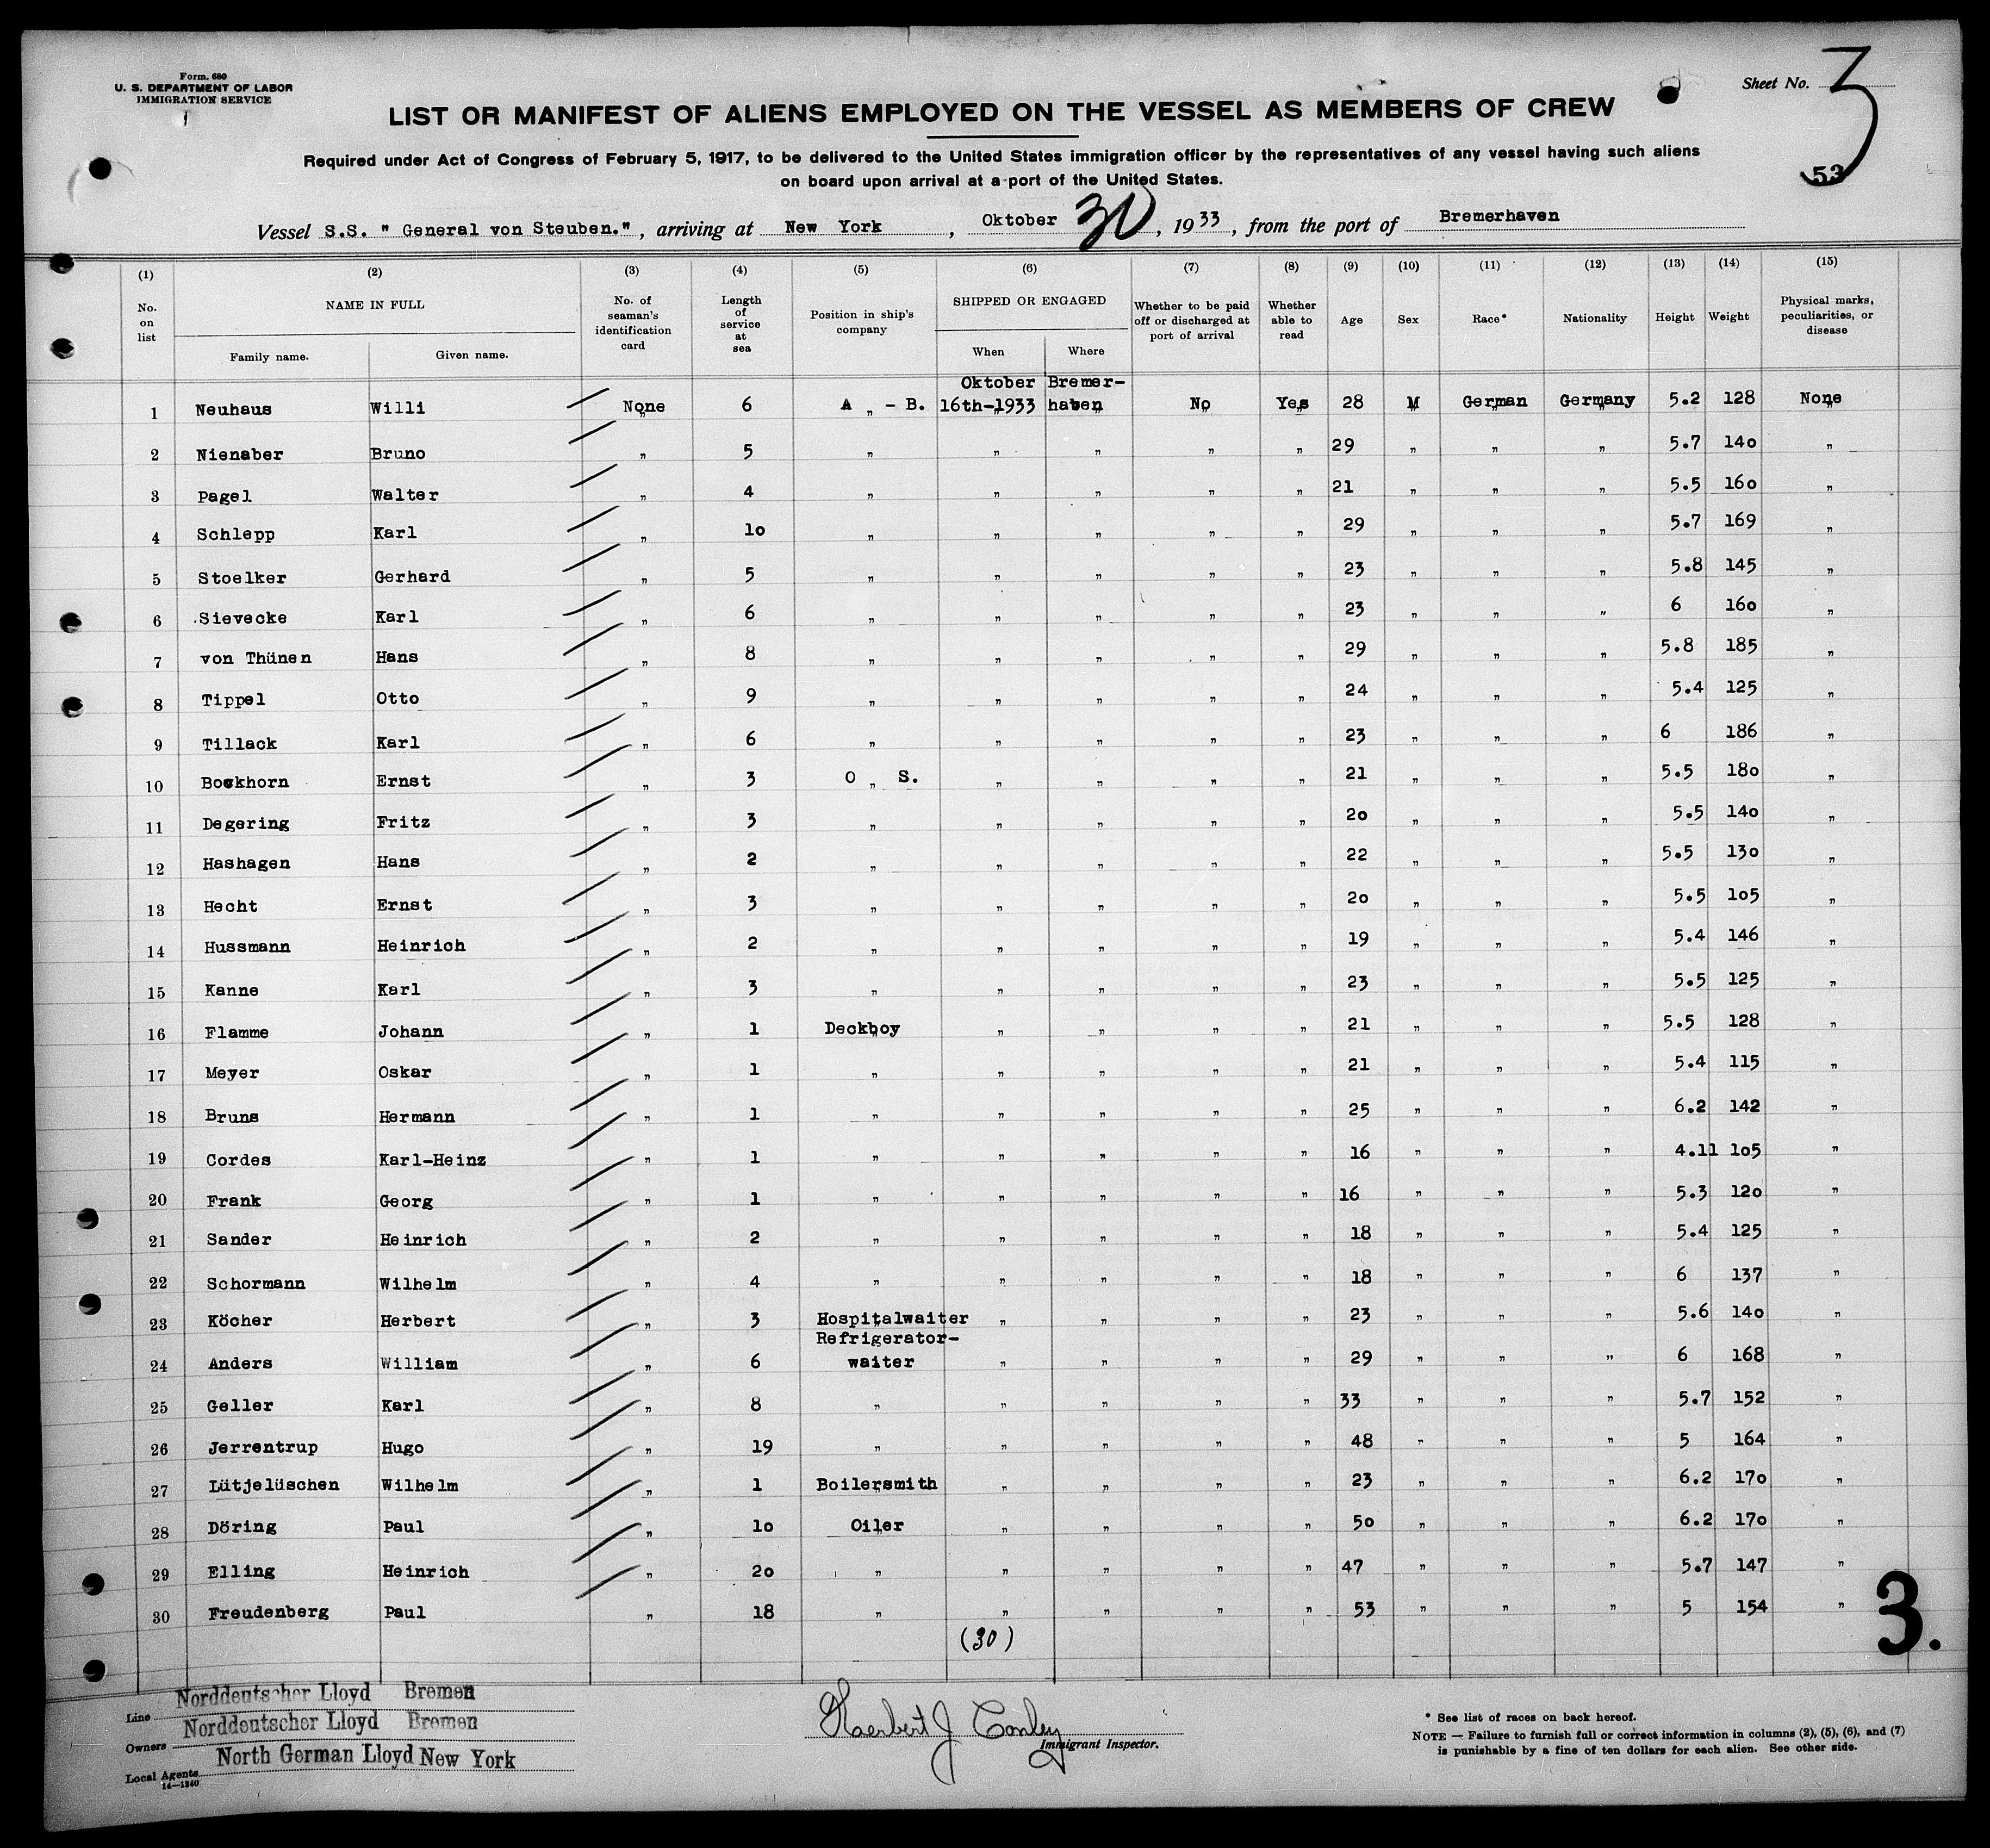 Form. 680
U. S. DEPARTMENT OF LABOR
IMMIGRATION SERVICE
Sheet No. 3
LIST OR MANIFEST OF ALIENS EMPLOYED ON THE VESSEL AS MEMBERS OF CREW
Required under Act of Congress of February 5, 1917, to be delivered to the United States immigration officer by the representatives of any vessel having such aliens
on board upon arrival at a port of the United States.
53
Vessel S.S. " General von Steuben.", arriving at New York, Oktober 30, 1933, from the port of Bremerhaven
(1) (2) (3) (4) (5) (6) (7) (8) (9) (10) (11) (12) (13) (14) (15)
No. on list
NAME IN FULL
Family name. Given name.
No. of seaman's identification card
Length of service at sea
Position in ship's company
SHIPPED OR ENGAGED
When Where
Whether to be paid off or discharged at port of arrival
Whether able to read
Age
Sex
Race*
Nationality
Height
Weight
Physical marks, peculiarities, or disease
Oktober Bremer-
1 Neuhaus Willi None 6 A „ - B. 16th-1933 haven No Yes 28 M German Germany 5.2 128 None
2 Nienaber Bruno „ 5 „ „ „ „ „ 29 „ „ „ 5.7 140 „
3 Pagel Walter „ 4 „ „ „ „ „ 21 „ „ „ 5.5 160 „
4 Schlepp Karl „ 10 „ „ „ „ „ 29 „ „ „ 5.7 169 „
5 Stoelker Gerhard „ 5 „ „ „ „ „ 23 „ „ „ 5.8 145 „
6 Sievecke Karl „ 6 „ „ „ „ „ 23 „ „ „ 6 160 „
7 von Thünen Hans „ 8 „ „ „ „ „ 29 „ „ „ 5.8 185 „
8 Tippel Otto „ 9 „ „ „ „ „ 24 „ „ „ 5.4 125 „
9 Tillack Karl „ 6 „ „ „ „ „ 23 „ „ „ 6 186 „
10 Bockhorn Ernst „ 3 O „ S. „ „ „ „ 21 „ „ „ 5.5 180 „
11 Degering Fritz „ 3 „ „ „ „ „ 20 „ „ „ 5.5 140 „
12 Hashagen Hans „ 2 „ „ „ „ „ 22 „ „ „ 5.5 130 „
13 Hecht Ernst „ 3 „ „ „ „ „ 20 „ „ „ 5.5 105 „
14 Hussmann Heinrich „ 2 „ „ „ „ „ 19 „ „ „ 5.4 146 „
15 Kanne Karl „ 3 „ „ „ „ „ 23 „ „ „ 5.5 125 „
16 Flamme Johann „ 1 Deckboy „ „ „ „ 21 „ „ „ 5.5 128 „
17 Meyer Oskar „ 1 „ „ „ „ „ 21 „ „ „ 5.4 115 „
18 Bruns Hermann „ 1 „ „ „ „ „ 25 „ „ „ 6.2 142 „
19 Cordes Karl-Heinz „ 1 „ „ „ „ „ 16 „ „ „ 4.11 105 „
20 Frank Georg „ 1 „ „ „ „ „ 16 „ „ „ 5.3 120 „
21 Sander Heinrich „ 2 „ „ „ „ „ 18 „ „ „ 5.4 125 „
22 Schormann Wilhelm „ 4 „ „ „ „ „ 18 „ „ „ 6 137 „
23 Köcher Herbert „ 3 Hospitalwaiter „ „ „ „ 23 „ „ „ 5.6 140 „
Refrigerator-
24 Anders William „ 6 waiter „ „ „ „ 29 „ „ „ 6 168 „
25 Geller Karl „ 8 „ „ „ „ „ 33 „ „ „ 5.7 152 „
26 Jerrentrup Hugo „ 19 „ „ „ „ „ 48 „ „ „ 5 164 „
27 Lütjelüschen Wilhelm „ 1 Boilersmith „ „ „ „ 23 „ „ „ 6.2 170 „
28 Döring Paul „ 10 Oiler „ „ „ „ 50 „ „ „ 6.2 170 „
29 Elling Heinrich „ 20 „ „ „ „ „ 47 „ „ „ 5.7 147 „
30 Freudenberg Paul „ 18 „ „ „ „ „ 53 „ „ „ 5 154 „
(30)
3.
Line Norddeutscher Lloyd Bremen
Owners Norddeutscher Lloyd Bremen
Local Agents North German Lloyd New York
14—1240
Herbert J Conley
Immigrant Inspector.
* See list of races on back hereof.
NOTE — Failure to furnish full or correct information in columns (2), (5), (6), and (7)
is punishable by a fine of ten dollars for each alien. See other side.